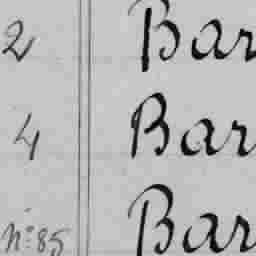 2 Bar
4 Bar
No: 85 Bar